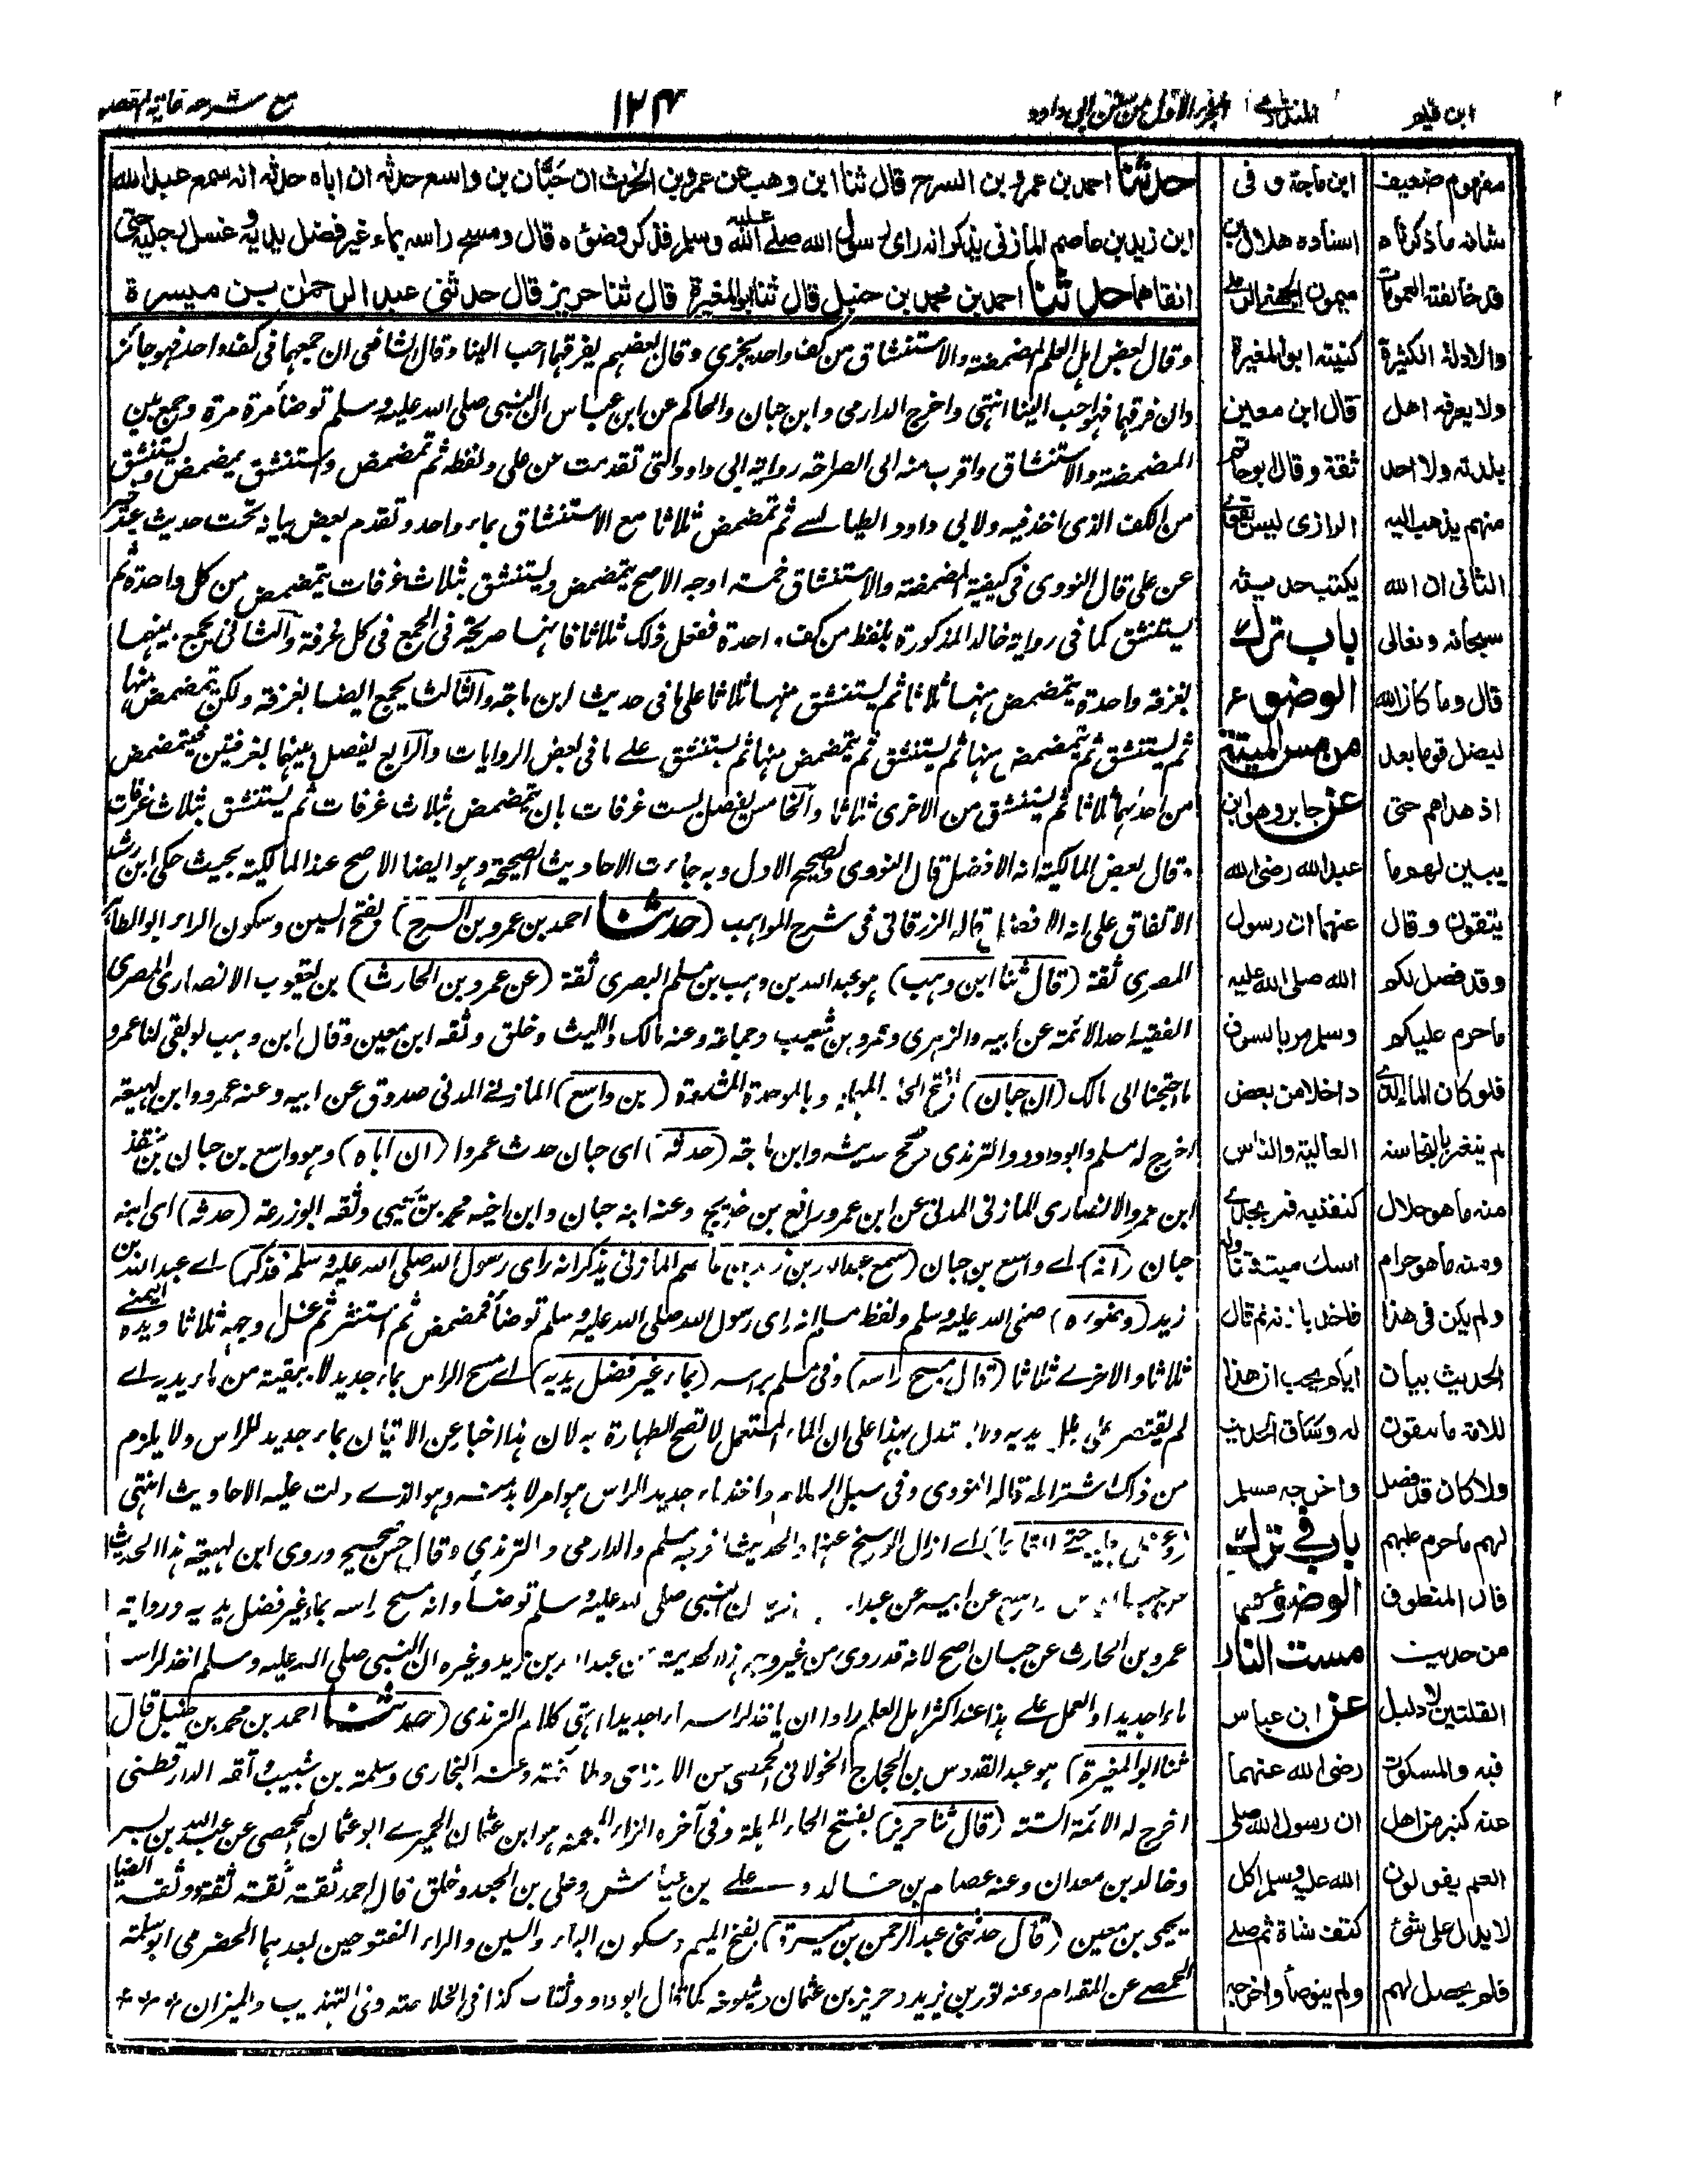 ابن قيم
المنذري
الجزء الاول من سنن ابي داود
١٢٤
مع شرحه غاية المقصود
حدثنا احمد بن عمرو بن السرح قال ثنا ابن وهب عن عمرو بن الحرث ان حبان بن واسع حدثه ان اباه حدثه انه سمع عبد الله
ابن زيد بن عاصم المازني يذكر انه راى رسول الله صلى الله عليه وسلم فذكر وضوءه قال ومسح راسه بماء غير فضل يديه وغسل رجليه حتى
انقاهما حدثنا احمد بن محمد بن حنبل قال ثنا ابو المغيرة قال ثنا حريز قال حدثني عبد الرحمن بن ميسرة
وقال بعض اهل العلم المضمضة والاستنشاق من كف واحد يجزي وقال بعضهم يفرقهما احب الينا وقال الشافعي ان جمعهما في كف واحد فهو جائز
وان فرقهما فهو احب الينا انتهى واخرج الدارمي وابن حبان والحاكم عن ابن عباس ان النبي صلى الله عليه وسلم توضأ مرة مرة وجمع بين
المضمضة والاستنشاق واقرب منه الى الصراحة رواية ابي داود التي تقدمت عن علي ولفظه ثم تمضمض واستنشق يمضمض ويستنشق
من الكف الذي اخذ فيه ولابي داود الطيالسي ثم تمضمض ثلاثا مع الاستنشاق بماء واحد وتقدم بعض بيانه تحت حديث عبد خير
عن علي قال النووي في كيفية المضمضة والاستنشاق خمسة اوجه الاصح يتمضمض ويستنشق بثلاث غرفات يتمضمض من كل واحدة ثم
يستنشق كما في رواية خالد المذكورة بلفظ من كف واحدة ففعل ذلك ثلاثا فانها صريحة في الجمع في كل غرفة والثاني يجمع بينهما
بغرفة واحدة يتمضمض منها ثلاثا ثم يستنشق منها ثلاثا على ما في حديث ابن ماجة والثالث يجمع ايضا بغرفة ولكن يتمضمض منها
ثم يستنشق ثم يتمضمض منها ثم يستنشق ثم يتمضمض منها ثم يستنشق على ما في بعض الروايات والرابع يفصل بينهما بغرفتين فيتمضمض
من احدهما ثلاثا ثم يستنشق من الاخرى ثلاثا والخامس يفصل بست غرفات بان يتمضمض بثلاث غرفات ثم يستنشق بثلاث غرفات
وقال بعض المالكية انه الافضل قال النووي والصحيح الاول وبه جاءت الاحاديث الصحيحة وهو ايضا الاصح عند المالكية بحيث حكى ابن رشد
الاتفاق على انه الافضل قاله الزرقاني في شرح المواهب (حدثنا احمد بن عمرو بن السرح) بفتح السين وسكون الراء ابو الطاهر
المصري ثقة (قال ثنا ابن وهب) هو عبد الله بن وهب بن مسلم البصري ثقة (عن عمرو بن الحارث) بن يعقوب الانصاري المصري
الفقيه احد الائمة عن ابيه والزهري وعمرو بن شعيب وجماعة وعنه مالك والليث وخلق وثقه ابن معين وقال ابن وهب لو بقي لنا عمرو
ما احتجنا الى مالك (ان حبان) بفتح الحاء المهملة وبالموحدة المشددة (بن واسع) المازني المدني صدوق عن ابيه وعنه عمرو وابن لهيعة
اخرج له مسلم وابو داود والترمذي وصحح حديثه وابن ماجة (حدثه) اي حبان حدث عمروا (ان اباه) وهو واسع بن حبان بن منقذ
ابن عمرو الانصاري المازني المدني عن ابن عمر ورافع بن خديج وعنه ابنه حبان وابن اخيه محمد بن يحيى وثقه ابو زرعة (حدثه) اي ابنه
حبان (انه) اے واسع بن حبان (سمع عبد الله بن زيد بن عاصم المازني يذكر انه راى رسول الله صلى الله عليه وسلم فذكر) اے عبد الله بن
زيد (وضوءه) صلى الله عليه وسلم ولفظ مسلم انه راى رسول الله صلى الله عليه وسلم توضأ فمضمض ثم استنثر ثم غسل وجهه ثلاثا ويده اليمنى
ثلاثا والاخرے ثلاثا (قال ومسح راسه) وفي مسلم براسه (بماء غير فضل يديه) اے مسح الراس بماء جديد لا ببقية من ماء يديه اے
لم يقتصر على بلل يديه ولا يستدل بهذا على ان الماء المستعمل لا تصح الطهارة به لان هذا اخبار عن الاتيان بماء جديد للراس ولا يلزم
من ذلك اشتراطه قاله النووي وفي سبل السلام واخذ ماء جديد للراس هو امر لا بد منه وهو الذے دلت عليه الاحاديث انتهى
(وغسل رجليه حتى انقاهما) اے ازال الوسخ عنهما والحديث اخرجه مسلم والدارمي والترمذي وقال حسن صحيح وروى ابن لهيعة هذا الحديث
عن حبان بن واسع عن ابيه عن عبد الله بن زيد ان النبي صلى الله عليه وسلم توضأ وانه مسح راسه بماء غير فضل يديه ورواية
عمرو بن الحارث عن حبان اصح لانه قد روي من غير وجه هذا الحديث عن عبد الله بن زيد وغيره ان النبي صلى الله عليه وسلم اخذ لراسه
ماء جديدا والعمل على هذا عند اكثر اهل العلم راوا ان ياخذ لراسه ماء جديدا انتهى كلام الترمذي (حدثنا احمد بن محمد بن حنبل قال
ثنا ابو المغيرة) هو عبد القدوس بن الحجاج الخولاني الحمصي عن الاوزاعي وطائفة وعنه البخاري وسلمة بن شبيب وثقه الدارقطني
اخرج له الائمة الستة (قال ثنا حريز) بفتح الحاء المهملة وفي آخره الزاء المعجمة هو ابن عثمان الحميرے ابو عثمان الحمصي عن عبد الله بن بسر
وخالد بن معدان وعنه عصام بن خالد وعلي بن عياش وعلي بن الجعد وخلق قال احمد ثقة ثقة ثقة ووثقه ايضا
يحيى بن معين (قال حدثني عبد الرحمن بن ميسرة) بفتح الميم وسكون الياء والسين والراء المفتوحين بعدهما الحضرمي ابو سلمة
الحمصے عن المقدام وعنه ثور بن يزيد وحريز بن عثمان وشيوخه كما قال ابو داود ثقات كذا في الخلاصة وفي التهذيب والميزان
ابن ماجة و في
اسناده هلال بن
ميمون الجهني الرملي
كنيته ابو المغيرة
قال ابن معين
ثقة وقال ابو حاتم
الرازى ليس بقوي
يكتب حديثه
باب ترك
الوضوء
من مس الميتة
عن جابر وهو ابن
عبد الله رضى الله
عنهما ان رسول
الله صلى الله عليه
وسلم مر بالسوق
داخلا من بعض
العالية والناس
كنفتيه فمر بجدي
اسك ميت فتناوله
فاخذ باذنه ثم قال
ايكم يحب ان هذا
له وساق الحديث
واخرجه مسلم
باب في ترك
الوضوء مما
مست النار
عن ابن عباس
رضى الله عنهما
ان رسول الله صلى
الله عليه وسلم اكل
كتف شاة ثم صلى
ولم يتوضأ واخرجه
مفهوم ضعيف
شانه ما ذكرناه
قد خالفته العمومات
والادلة الكثيرة
ولا يعرفه اهل
بلدته ولا احد
منهم يذهب اليه
الثانى ان الله
سبحانه وتعالى
قال وما كان الله
ليضل قوما بعد
اذ هداهم حتى
يبين لهم ما
يتقون وقال
وقد فصل لكم
ما حرم عليكم
فلو كان الماء الذي
لم يتغير بالنجاسة
منه ما هو حلال
ومنه ما هو حرام
ولم يكن فى هذا
الحديث بيان
للامة ما يتقون
ولا كان قد فصل
لهم ما حرم عليهم
فان المنطوق
من حديث
القلتين لا دليل
فيه والمسكوت
عنه كثير من اهل
العلم يقولون
لا يدل على شئ
فلم يحصل لهم